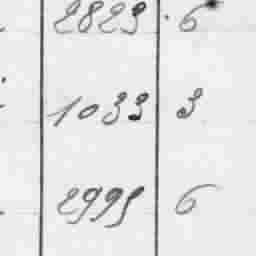 2823 6
1033 3
2995 6